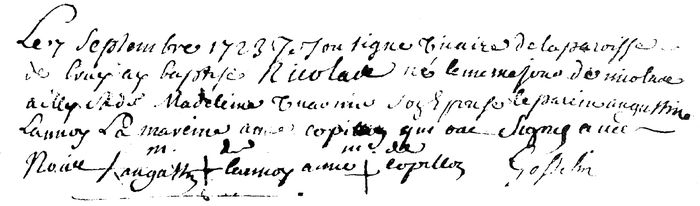 Le 7 septembre 1723 Je Sousigné vicaire de la paroisse
de ay baptisé Nicolas né le meme jour de nicolas
ailly et de Madeleine son Epouse le parein augustin
Lannoy La mareine anne copillon qui ont Signé avec
Nous m. augustin + de lannoy anne m. + de copillon Gosselin